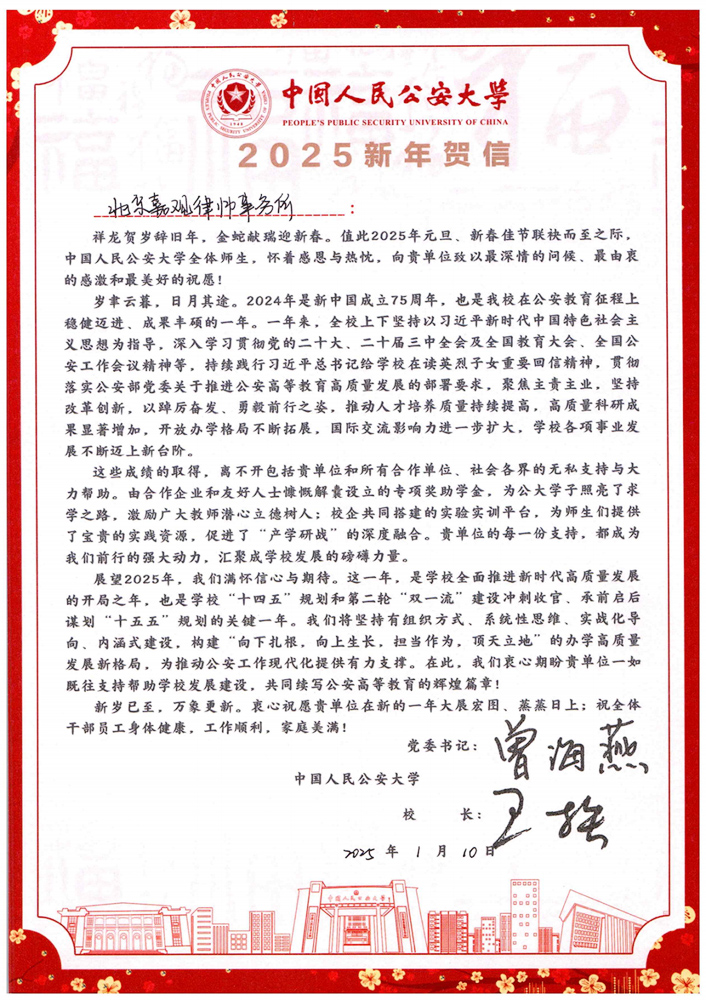 中国人民公安大学
PEOPLE'S PUBLIC SECURITY UNIVERSITY OF CHINA
2025新年贺信
北京嘉观律师事务所：
祥龙贺岁辞旧年，金蛇献瑞迎新春。值此2025年元旦、新春佳节联袂而至之际，
中国人民公安大学全体师生，怀着感恩与热忱，向贵单位致以最深情的问候、最由衷
的感激和最美好的祝愿！
岁聿云暮，日月其途。2024年是新中国成立75周年，也是我校在公安教育征程上
稳健迈进、成果丰硕的一年。一年来，全校上下坚持以习近平新时代中国特色社会主
义思想为指导，深入学习贯彻党的二十大、二十届三中全会及全国教育大会、全国公
安工作会议精神等，持续践行习近平总书记给学校在读英烈子女重要回信精神，贯彻
落实公安部党委关于推进公安高等教育高质量发展的部署要求，聚焦主责主业，坚持
改革创新，以踔厉奋发、勇毅前行之姿，推动人才培养质量持续提高，高质量科研成
果显著增加，开放办学格局不断拓展，国际交流影响力进一步扩大，学校各项事业发
展不断迈上新台阶。
这些成绩的取得，离不开包括贵单位和所有合作单位、社会各界的无私支持与大
力帮助。由合作企业和友好人士慷慨解囊设立的专项奖助学金，为公大学子照亮了求
学之路，激励广大教师潜心立德树人；校企共同搭建的实验实训平台，为师生们提供
了宝贵的实践资源，促进了“产学研战”的深度融合。贵单位的每一份支持，都成为
我们前行的强大动力，汇聚成学校发展的磅礴力量。
展望2025年，我们满怀信心与期待。这一年，是学校全面推进新时代高质量发展
的开局之年，也是学校“十四五”规划和第二轮“双一流”建设冲刺收官、承前启后
谋划“十五五”规划的关键一年。我们将坚持有组织方式、系统性思维、实战化导
向、内涵式建设，构建“向下扎根，向上生长，担当作为，顶天立地”的办学高质量
发展新格局，为推动公安工作现代化提供有力支撑。在此，我们衷心期盼贵单位一如
既往支持帮助学校发展建设，共同续写公安高等教育的辉煌篇章！
新岁已至，万象更新。衷心祝愿贵单位在新的一年大展宏图、蒸蒸日上；祝全体
干部员工身体健康，工作顺利，家庭美满！
党委书记：曾海燕
中国人民公安大学
校 长：
2025 年 1 月 10 日
中国人民公安大学